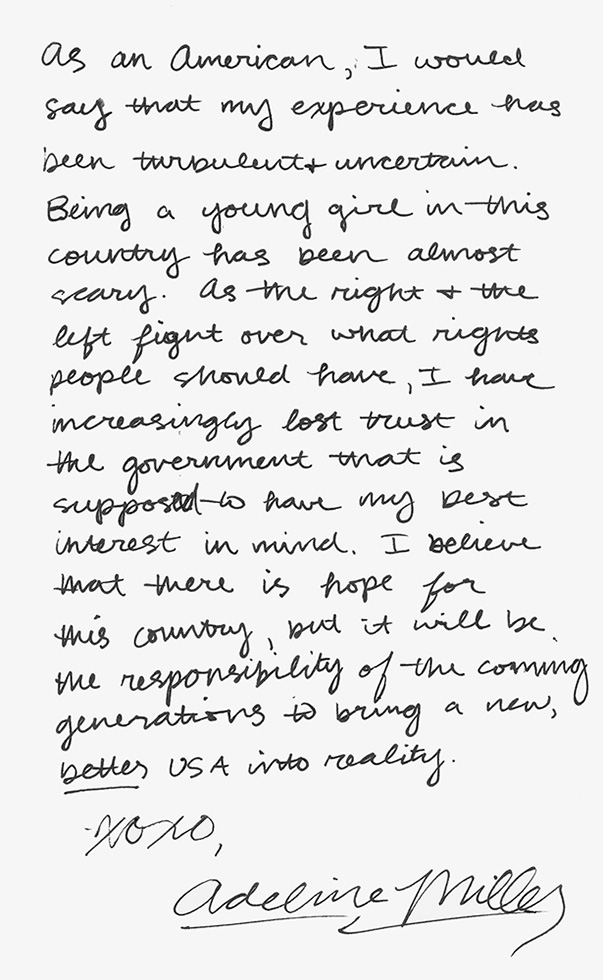 As an American, I would
say that my experience has
been turbulent & uncertain.
Being a young girl in this
country has been almost
scary. As the right & the
left fight over what rights
people should have, I have
increasingly lost trust in
the government that is
supposed to have my best
interest in mind. I believe
that there is hope for
this country, but it will be
the responsibility of the coming
generations to bring a new,
better USA into reality.
xoxo,
Adeline Miller